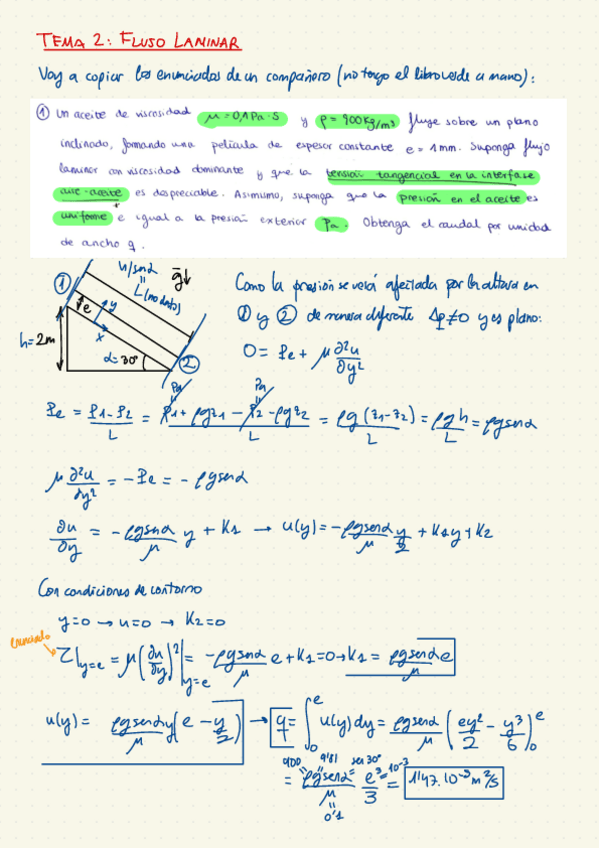 TEMA 2: FLUJO LAMINAR
Voy a copiar los enunciados de un compañero (no tengo el libro verde a mano):
① Un aceite de viscosidad μ = 0,1 Pa·s y ρ = 900 Kg/m³ fluye sobre un plano
inclinado, formando una película de espesor constante e = 1 mm. Suponga flujo
laminar con viscosidad dominante y que la tensión tangencial en la interfase
aire-aceite es despreciable. Asimismo, suponga que la presión en el aceite es
uniforme e igual a la presión exterior Pa. Obtenga el caudal por unidad
de ancho q.
h/senα
L (no dato)
g↓
① e y x
h=2m
α=30° ②
Como la presión se verá afectada por la altura en
① y ② de manera diferente Δp≠0 y es plano:
0 = Pe + μ ∂²u/∂y²
Pa Pa
Pe = (P1-P2)/L = (P1 + ρgz1 - P2 - ρgz2)/L = ρg(z1-z2)/L = ρgh/L = ρgsenα
μ ∂²u/∂y² = -Pe = -ρgsenα
∂u/∂y = -ρgsenα/μ y + K1 → u(y) = -ρgsenα/μ y/2 + K1y + K2
Con condiciones de contorno
y=0 → u=0 → K2=0
enunciado
τ|y=e = μ(∂u/∂y)²|y=e = -ρgsenα/μ e + K1 = 0 → K1 = ρgsenαe/μ
u(y) = ρgsenαy/μ (e - y/2) → q = ∫₀ᵉ u(y)dy = ρgsenα/μ (ey²/2 - y³/6)₀ᵉ
900 9'81 sen30° 10⁻³
= ρgsenα/μ e³/3 = 1'47·10⁻⁵ m²/s
0'1